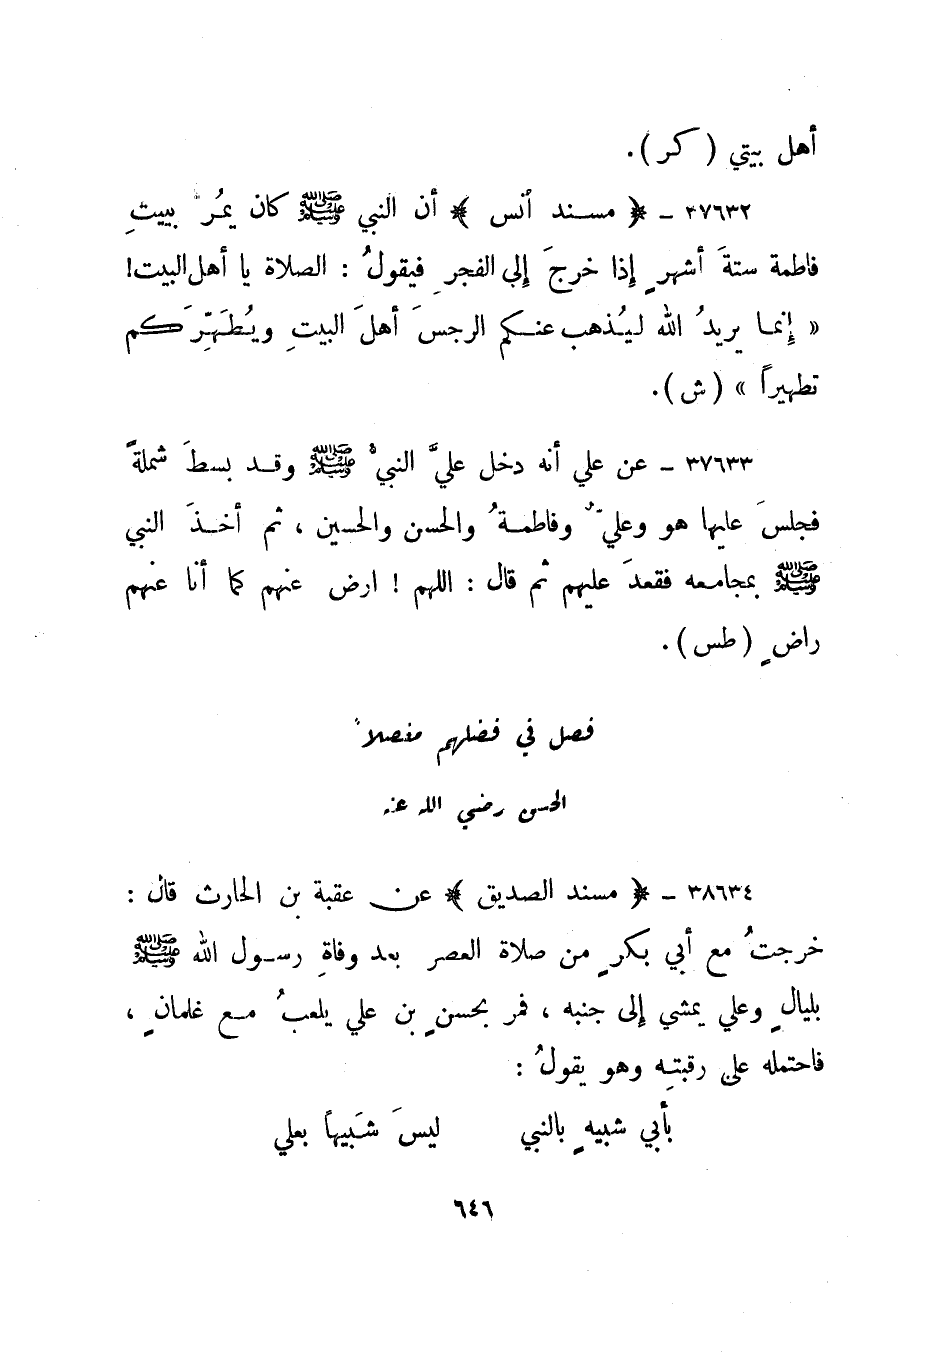 أهل بيتي (كر).
٣٧٦٣٢ – ﴿ مسند أنس ﴾ أن النبي ﷺ كان يمُر ببيتِ
فاطمة ستةَ أشهرٍ إذا خرجَ إلى الفجرِ فيقولُ : الصلاة يا أهل البيت!
« إنما يريدُ الله ليُذهب عنكم الرجسَ أهلَ البيتِ ويُطَهِّرَكم
تطهيراً » (ش).
٣٧٦٣٣ – عن علي أنه دخل عليَّ النبيُّ ﷺ وقد بسطَ شملةً
فجلسَ عليها هو وعليٌّ وفاطمةُ والحسن والحسين ، ثم أخذَ النبي
ﷺ بمجامعه فقعدَ عليهم ثم قال : اللهم ! ارض عنهم كما أنا عنهم
راضٍ (طس).
فصل في فضلهم مفصلاً
الحسن رضي الله عنه
٣٨٦٣٤ – ﴿ مسند الصديق ﴾ عن عقبة بن الحارث قال :
خرجتُ مع أبي بكرٍ من صلاة العصر بعد وفاةِ رسول الله ﷺ
بليالٍ وعلي يمشي إلى جنبه ، فمر بحسنٍ بن علي يلعبُ مع غلمانٍ ،
فاحتمله على رقبتِه وهو يقولُ :
بأبي شبيهٍ بالنبي ليسَ شَبيهاً بعلي
٦٤٦